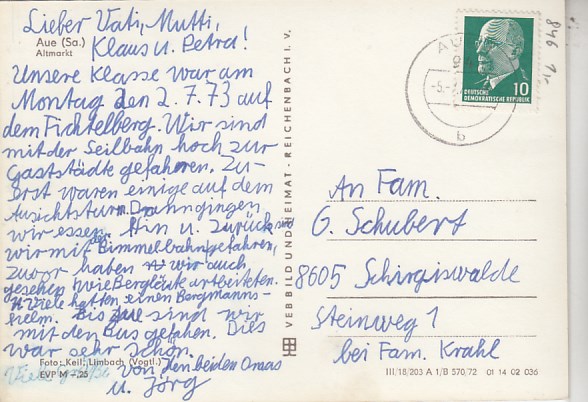 Lieber Vati, Mutti,
Aue (Sa.)
Altmarkt
Klaus u. Petra!
Unsere Klasse war am
Montag den 2.7.73 auf
dem Fichtelberg. Wir sind
mit der Seilbahn hoch zur
Gaststädte gefahren. Zu-
erst waren einige auf dem
Ausichtsturm. Dann gingen
wir essen. Hin u. zurück sind
wir mit der Bimmelbahn gefahren,
zuvor haben wir auch
gesehen wie Bergleute arbeiteten.
Viele hatten einen Bergmanns-
helm. Bis Aue sind wir
mit den Bus gefahen. Dies
war sehr schön.
Foto: Keil, Limbach (Vogtl.)
Viele Grüße
EVP M -,25
von den beiden Omas
u. Jörg
VEB BILD UND HEIMAT · REICHENBACH I. V.
846 1,-
AUE
-5.-
b
10
DEUTSCHE
DEMOKRATISCHE REPUBLIK
An Fam.
G. Schubert
8605 Schirgiswalde
Steinweg 1
bei Fam. Krahl
III/18/203 A 1/B 570/72 01 14 02 036